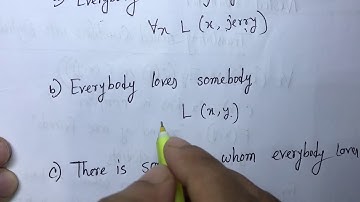 Everybody
∀x L (x, jerry)
b) Everybody loves somebody
L (x, y)
c) There is whom everybody loves